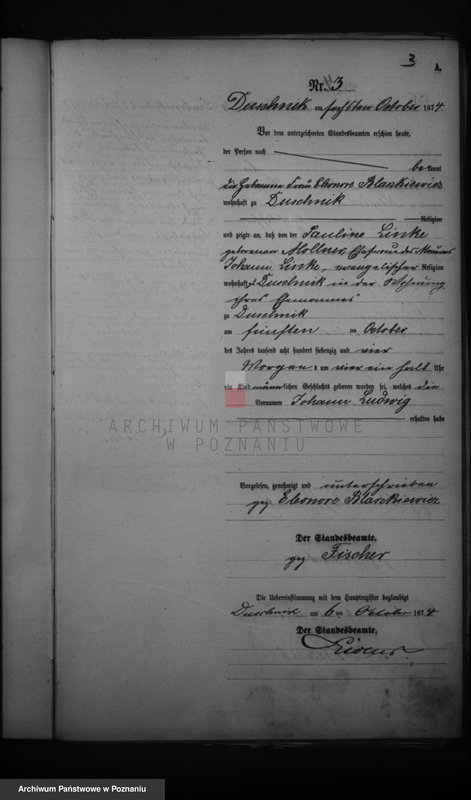 3
A.
Nr. 3
Duschnik am sechsten October 1874.
Vor dem unterzeichneten Standesbeamten erschien heute,
der Person nach
bekannt
die Hebamme Frau Eleonore Blaszkiewicz
wohnhaft zu Duschnik
Religion
und zeigte an, daß von der Pauline Linke
geborenen Mollner, Ehefrau des Maurers
Johann Linke, evangelischer Religion
wohnhaft zu Duschnik in der Wohnung
ihres Ehemannes
zu Duschnik
am fünften ten October
des Jahres tausend acht hundert siebenzig und vier
Morgens um vier ein halb Uhr
ein Kind männlichen Geschlechts geboren worden sei, welches die
Vornamen Johann Ludwig
erhalten habe
ARCHIWUM PAŃSTWOWE
W POZNANIU
Vorgelesen, genehmigt und unterschrieben
gez Eleonore Blaszkiewicz
Der Standesbeamte.
gez Fischer
Die Uebereinstimmung mit dem Hauptregister beglaubigt
Duschnik am 6 ten October 1874
Der Standesbeamte.
Archiwum Państwowe w Poznaniu